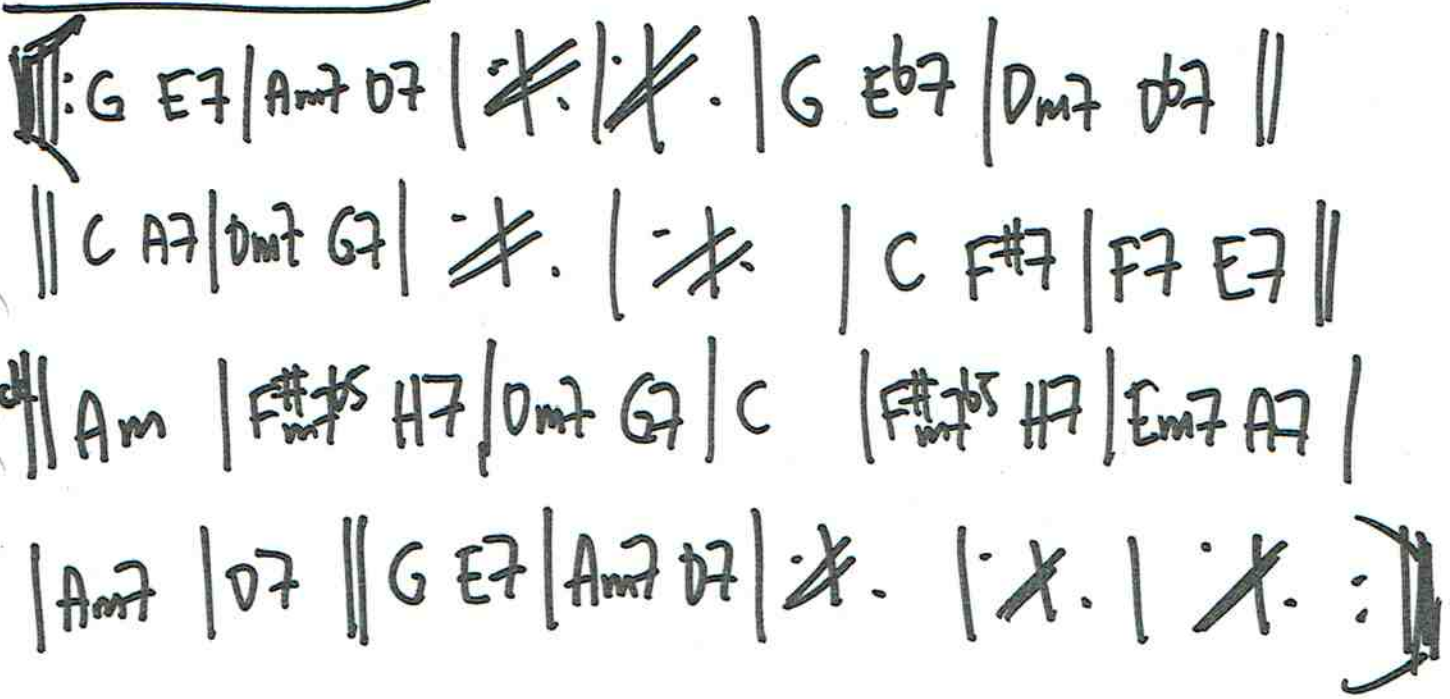 ‖: G E7 | Am7 D7 | 𝄎 | 𝄎 | G Eb7 | Dm7 Db7 ‖
‖ C A7 | Dm7 G7 | 𝄎 | 𝄎 | C F#7 | F7 E7 ‖
‖ Am | F#m7b5 H7 | Dm7 G7 | C | F#m7b5 H7 | Em7 A7 |
| Am7 | D7 ‖ G E7 | Am7 D7 | 𝄎 | 𝄎 | 𝄎 :‖